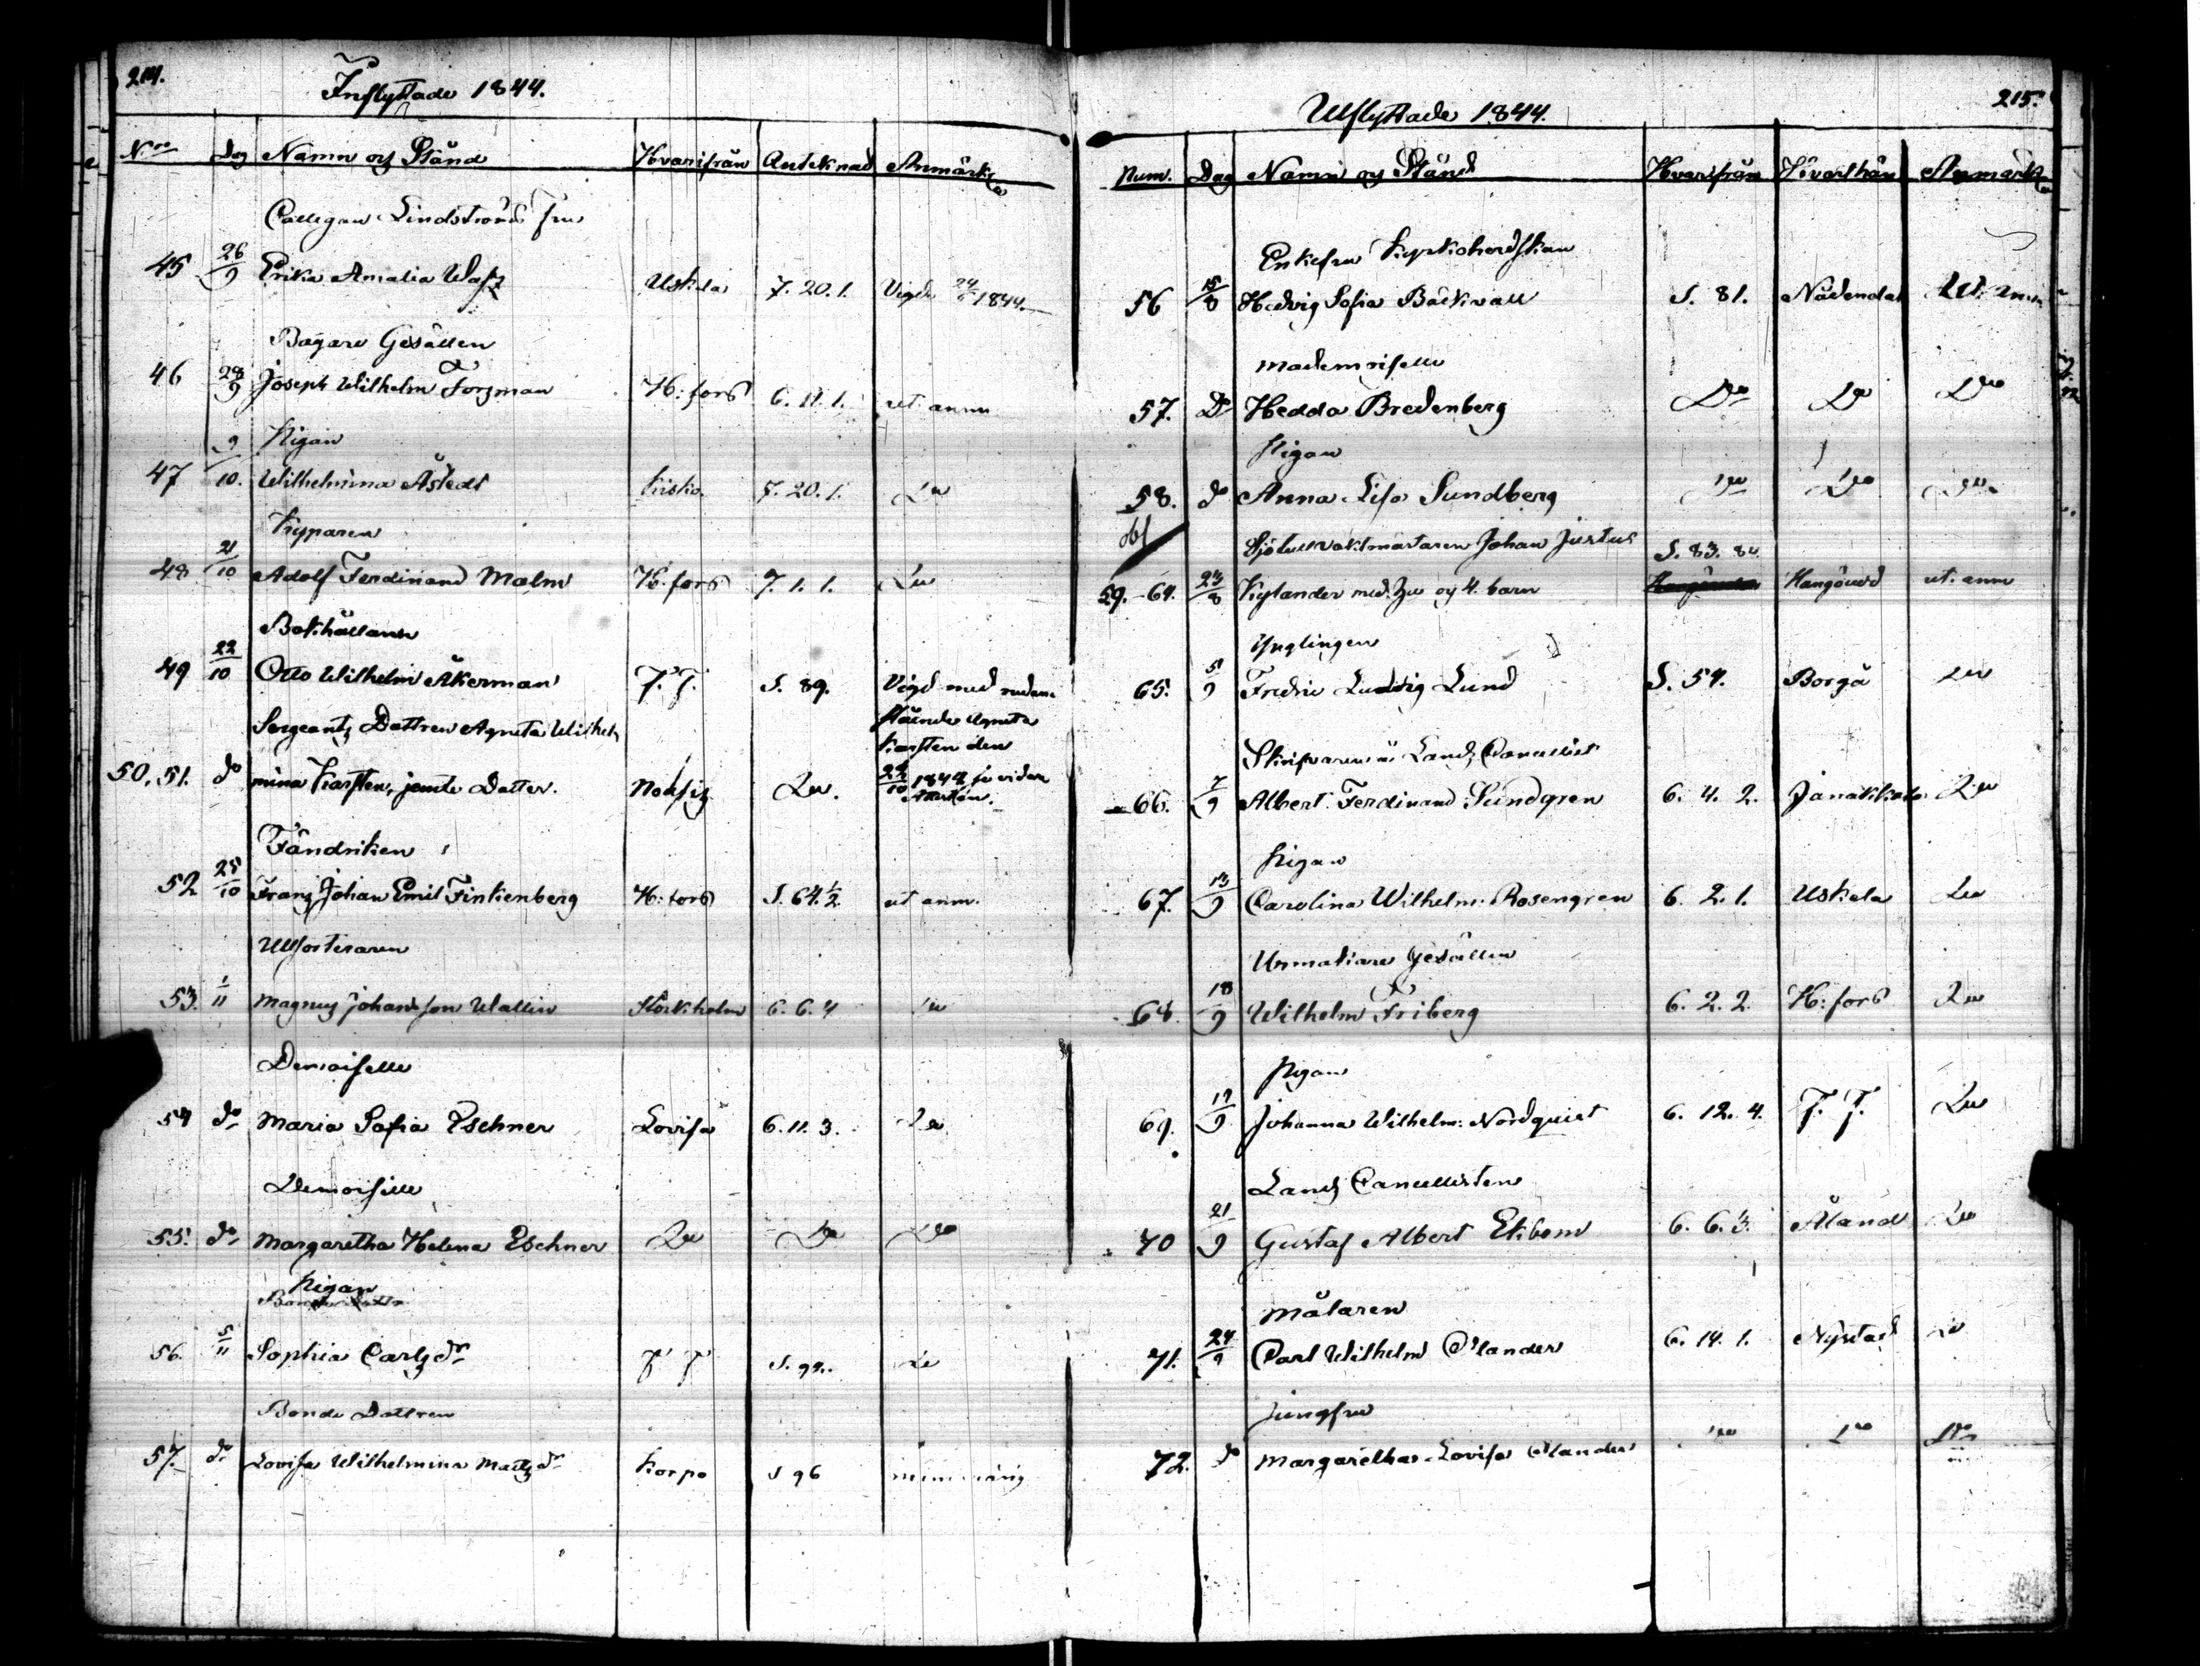 214.
Inflyttade 1844.
N:ro Dag Namn och Stånd Hvarifrån Anteknad Anmärkn
Collegan Lindströms fru
45 26/9 Erika Amalia Uskela 7. 20. 1. Vigde 24/6 1844.
Bagare Gesällen
46 28/9 Joseph Wilhelm Forsman H:fors 6. 11. 1. ut. anm
Pigan
47 9/10. Wilhelmina Åstedt Kisko. 7. 20. 1. Do
Kyparen
48 21/10 Adolf Ferdinand Malm H:fors 7. 1. 1. Do
Bokhållaren
49 22/10 Otto Wilhelm Åkerman F. F. S. 89. Vigd med nedan
stående Agneta
Sergeants Dottren Agneta Wilhel
Karsten den
50. 51. do mina Karsten, jemte Dotter. Do. 24/10 1844
Fändriken
52 25/10 Franz Johan Emil Finkenberg H:fors S. 64 1/2. ut anm.
53. 1/11 Magnus Johansson Wallin Stockholm 6. 6. 4 Do
Demoiselle
54 do Maria Sofia Eschner Lovisa 6. 11. 3. Do
Demoiselle
55. do Margaretha Helena Eschner Do Do Do
Pigan
56. 5/11 Sophia Carlsdr F F Do
Bonde Dottren
57. do Lovisa Wilhelmina Matsdr Korpo S 96
215.
Utflyttade 1844.
Num. Dag Namn och Stånd Hvarifrån Hvarthän Anmärkn
Enkefru Kyrkoherdskan
56 15/8 Hedvig Sofia Bäckvall S. 81. Nådendal Ut. anm
Mademoiselle
57. Do Hedda Bredenberg Do Do Do
Pigan
58. do Anna Lisa Sundberg Do Do Do
obs
Sjötullvaktmästaren Johan Justus S. 83. 84
59.-64. 23/8 Kylander med hu och 4. barn Hangöudd ut. anm
Ynglingen
65. 5/9 Fredric Ludvig Lund S. 54. Borgå Do
Skrifvaren Lands Cancellist
66. 7/9 Albert Ferdinand Sundgren 6. 4. 2. Janakkala Do
Pigan
67. 13/9 Carolina Wilhelm: Rosengren 6. 2. 1. Uskela Do
Urmakare Gesällen
68. 18/9 Wilhelm Friberg 6. 2. 2. H:fors Do
Pigan
69. 19/9 Johanna Wilhelm: Nordquist 6. 12. 4. F. F. Do
Lands Cancellisten
70 21/9 Gustaf Albert Ekbom 6. 6. 3. Åland Do
Målaren
71. 24/9 Carl Wilhelm Olander 6. 14. 1. Nystad Do
Jungfru
72. do Margaretha Lovisa Olander Do Do Do